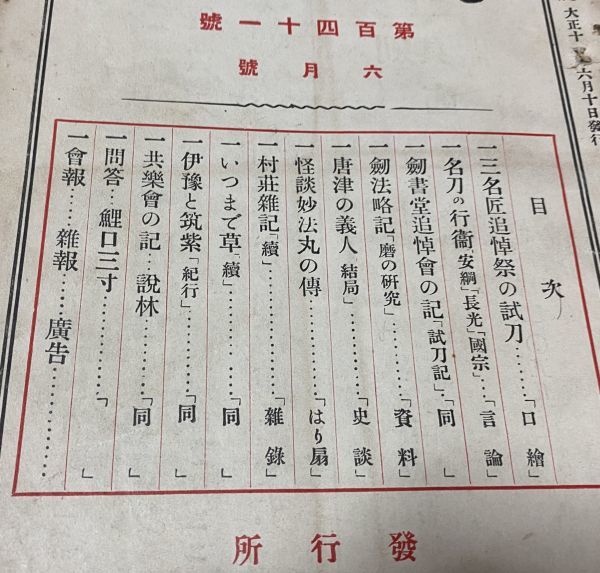 大正十 六月十日發行
第百四十一號
六月號
目次
一三名匠追悼祭の試刀……「口繪」
一名刀の行衞「安綱」「長光」「國宗」…「言論」
一劒書堂追悼會の記「試刀記」…「同」
一劒法略記「磨の硏究」………「資料」
一唐津の義人「結局」………「史談」
一怪談妙法丸の傳…………「はり扇」
一村莊雜記「續」…………「雜錄」
一いつまで草「續」…………「同」
一伊豫と筑紫「紀行」………「同」
一共樂會の記…說林………「同」
一問答…鯉口三寸…………「」
一會報……雜報……廣告…………
發行所